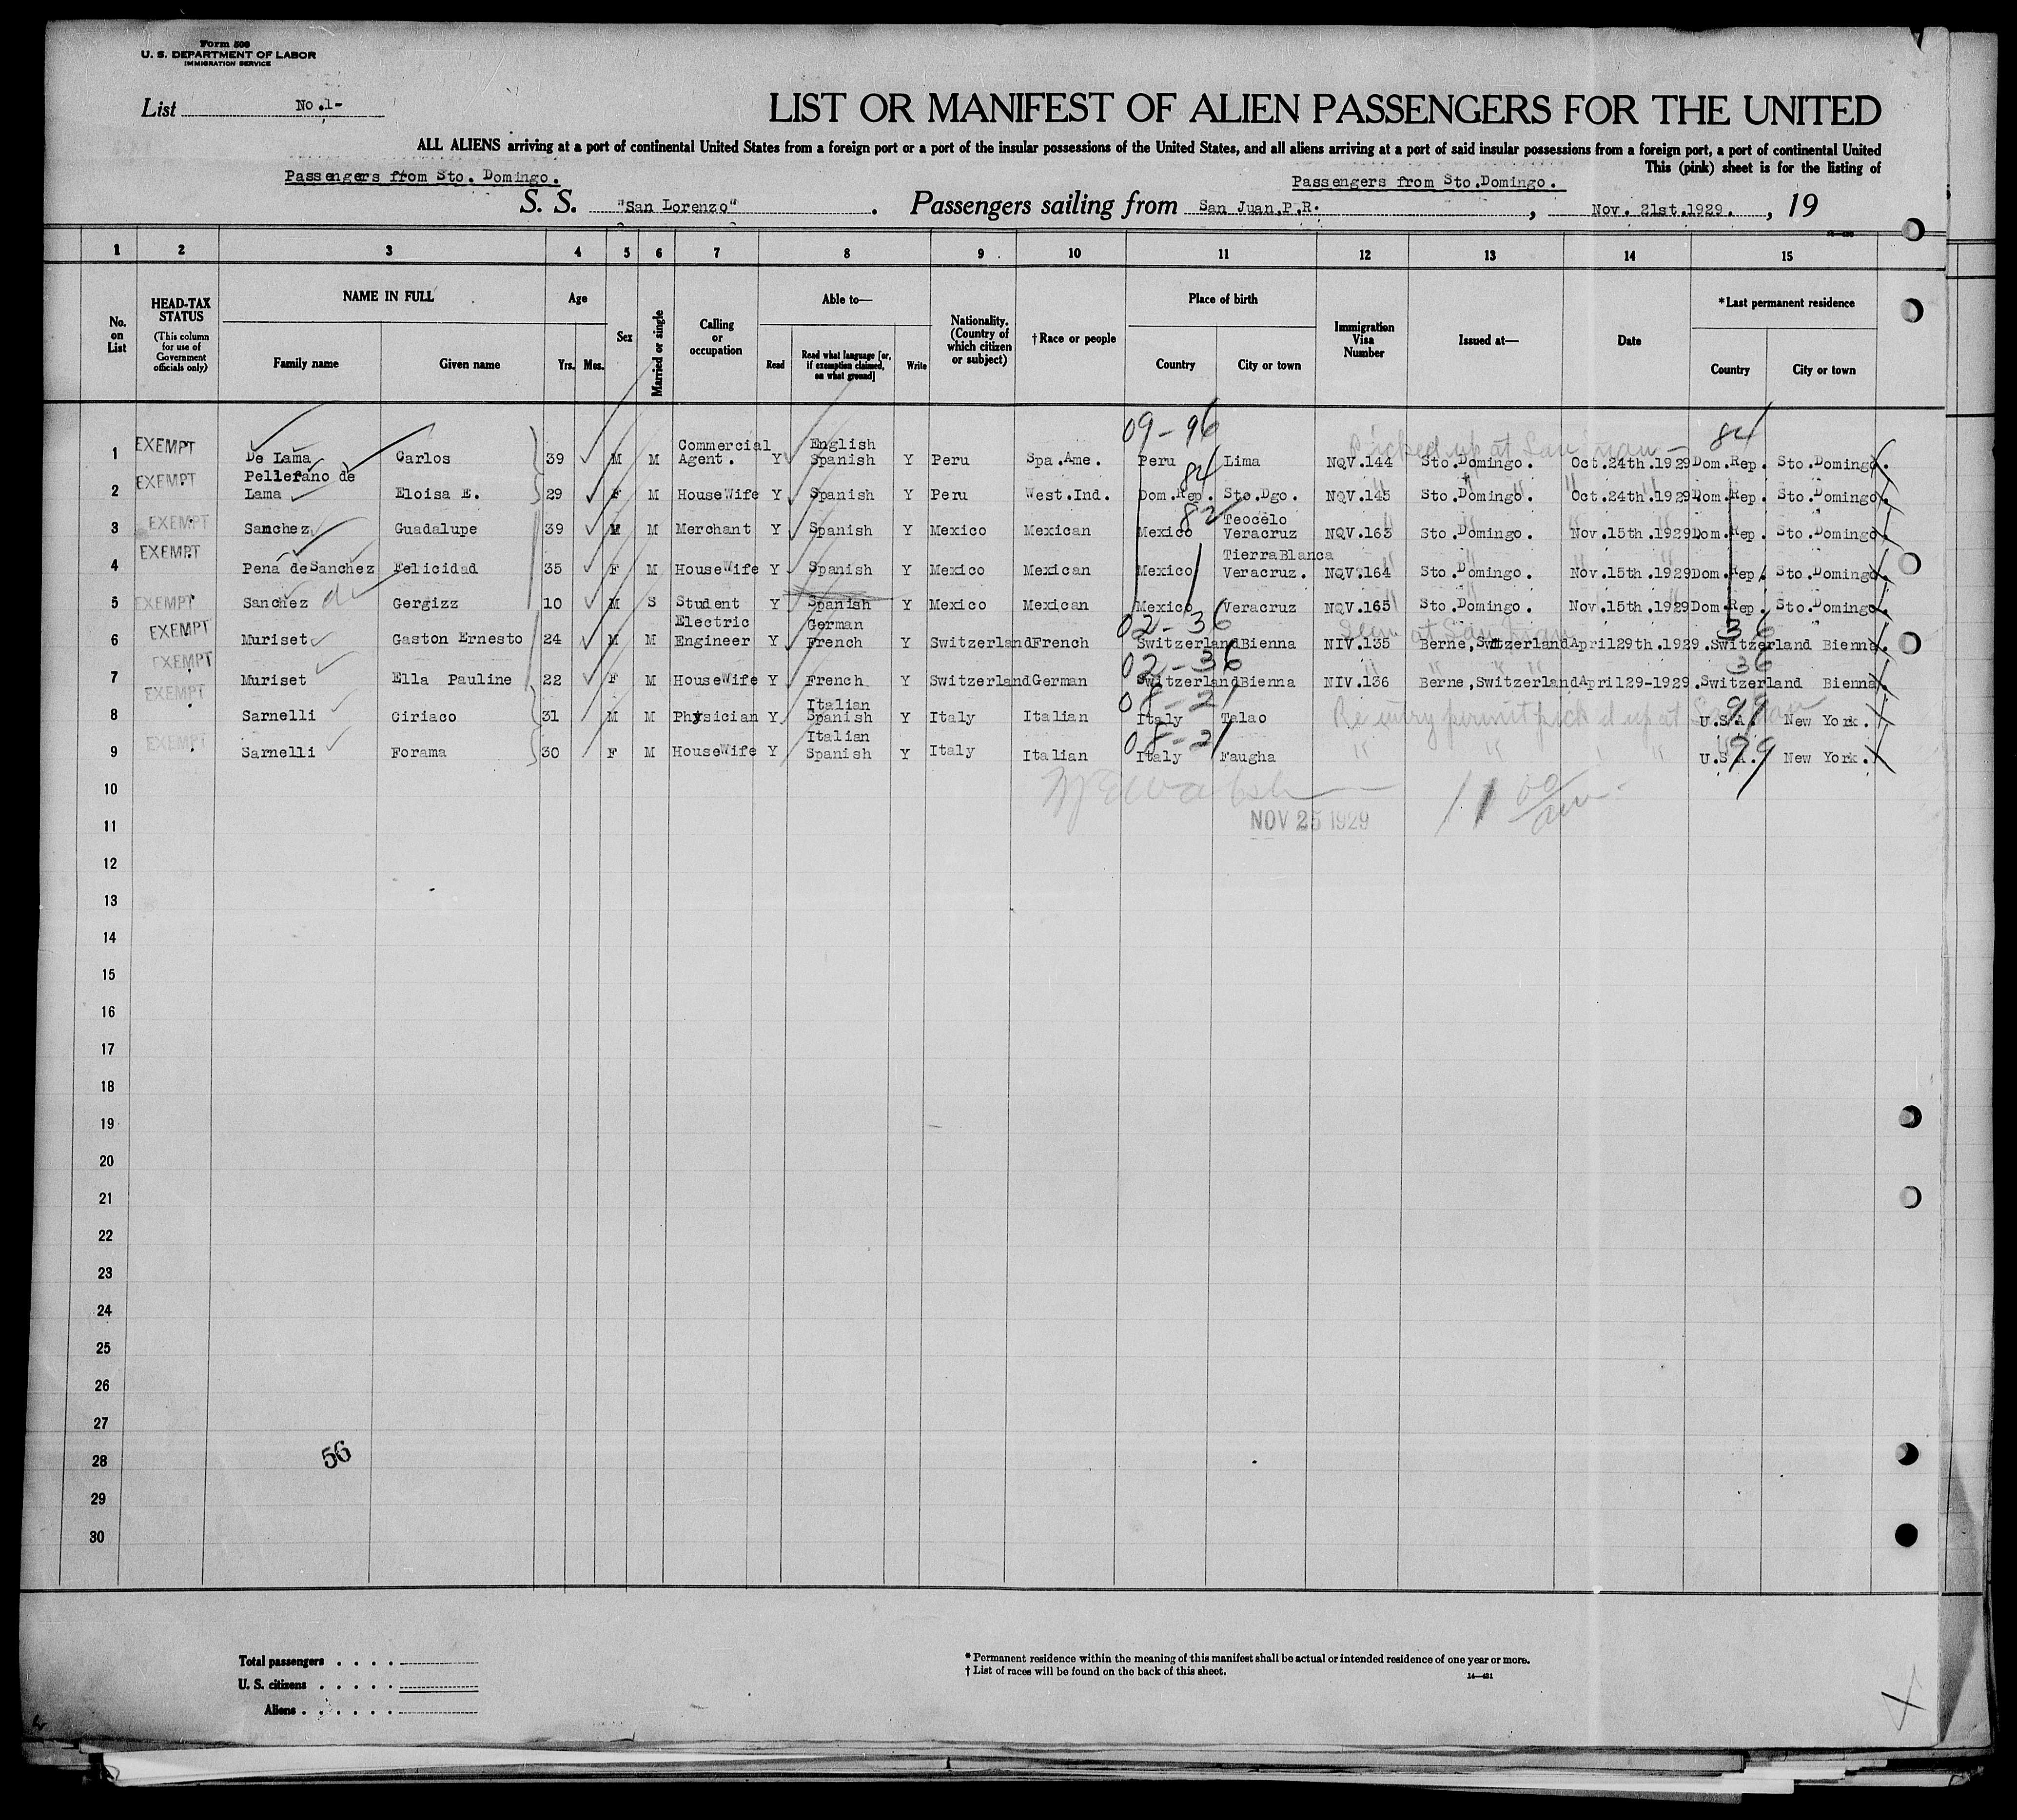 Form 500
U. S. DEPARTMENT OF LABOR
IMMIGRATION SERVICE
List No.1-
LIST OR MANIFEST OF ALIEN PASSENGERS FOR THE UNITED
ALL ALIENS arriving at a port of continental United States from a foreign port or a port of the insular possessions of the United States, and all aliens arriving at a port of said insular possessions from a foreign port, a port of continental United
This (pink) sheet is for the listing of
Passengers from Sto. Domingo. Passengers from Sto.Domingo.
S. S. "San Lorenzo" . Passengers sailing from San Juan.P.R. , Nov. 21st.1929. , 19
1 2 3 4 5 6 7 8 9 10 11 12 13 14 15
No. on List
HEAD-TAX STATUS (This column for use of Government officials only)
NAME IN FULL Family name Given name
Age Yrs. Mos.
Sex
Married or single
Calling or occupation
Able to— Read Read what language [or, if exemption claimed, on what ground] Write
Nationality. (Country of which citizen or subject)
† Race or people
Place of birth Country City or town
Immigration Visa Number
Issued at—
Date
*Last permanent residence Country City or town
09-96 Picked up at San Juan - 84
1 EXEMPT De Lama Carlos 39 M M Commercial Agent. Y English Spanish Y Peru Spa.Ame. Peru Lima NQV.144 Sto.Domingo. Oct.24th.1929 Dom.Rep. Sto.Domingo.
84
2 EXEMPT Pellerano de Lama Eloisa E. 29 F M HouseWife Y Spanish Y Peru West.Ind. Dom.Rep. Sto.Dgo. NQV.145 Sto.Domingo. Oct.24th.1929 Dom.Rep. Sto.Domingo.
82
3 EXEMPT Sanchez Guadalupe 39 M M Merchant Y Spanish Y Mexico Mexican Mexico Teocelo Veracruz NQV.163 Sto.Domingo. Nov.15th.1929 Dom.Rep. Sto.Domingo.
4 EXEMPT Pena deSanchez Felicidad 35 F M HouseWife Y Spanish Y Mexico Mexican Mexico TierraBlanca Veracruz. NQV.164 Sto.Domingo. Nov.15th.1929 Dom.Rep. Sto.Domingo.
5 EXEMPT Sanchez Gergizz 10 M S Student Y Spanish Y Mexico Mexican Mexico Veracruz NQV.165 Sto.Domingo. Nov.15th.1929 Dom.Rep. Sto.Domingo.
02-36 Seen at San Juan 36
6 EXEMPT Muriset Gaston Ernesto 24 M M Electric Engineer Y German French Y Switzerland French Switzerland Bienna NIV.135 Berne,Switzerland April29th.1929. Switzerland Bienna.
02-36 36
7 EXEMPT Muriset Ella Pauline 22 F M HouseWife Y French Y Switzerland German Switzerland Bienna NIV.136 Berne,Switzerland April29-1929. Switzerland Bienna.
08-21 Re entry permit pick d up at San Juan 99
8 EXEMPT Sarnelli Ciriaco 31 M M Physician Y Italian Spanish Y Italy Italian Italy Talao U.S.A. New York.
08-21 99
9 EXEMPT Sarnelli Forama 30 F M HouseWife Y Italian Spanish Y Italy Italian Italy Faugha U.S.A. New York.
10
NOV 25 1929 11 00 am
11
12
13
14
15
16
17
18
19
20
21
22
23
24
25
26
27
28 56
29
30
Total passengers . . . .
U. S. citizens . . . . .
Aliens . . . . . .
* Permanent residence within the meaning of this manifest shall be actual or intended residence of one year or more.
† List of races will be found on the back of this sheet.
14—421